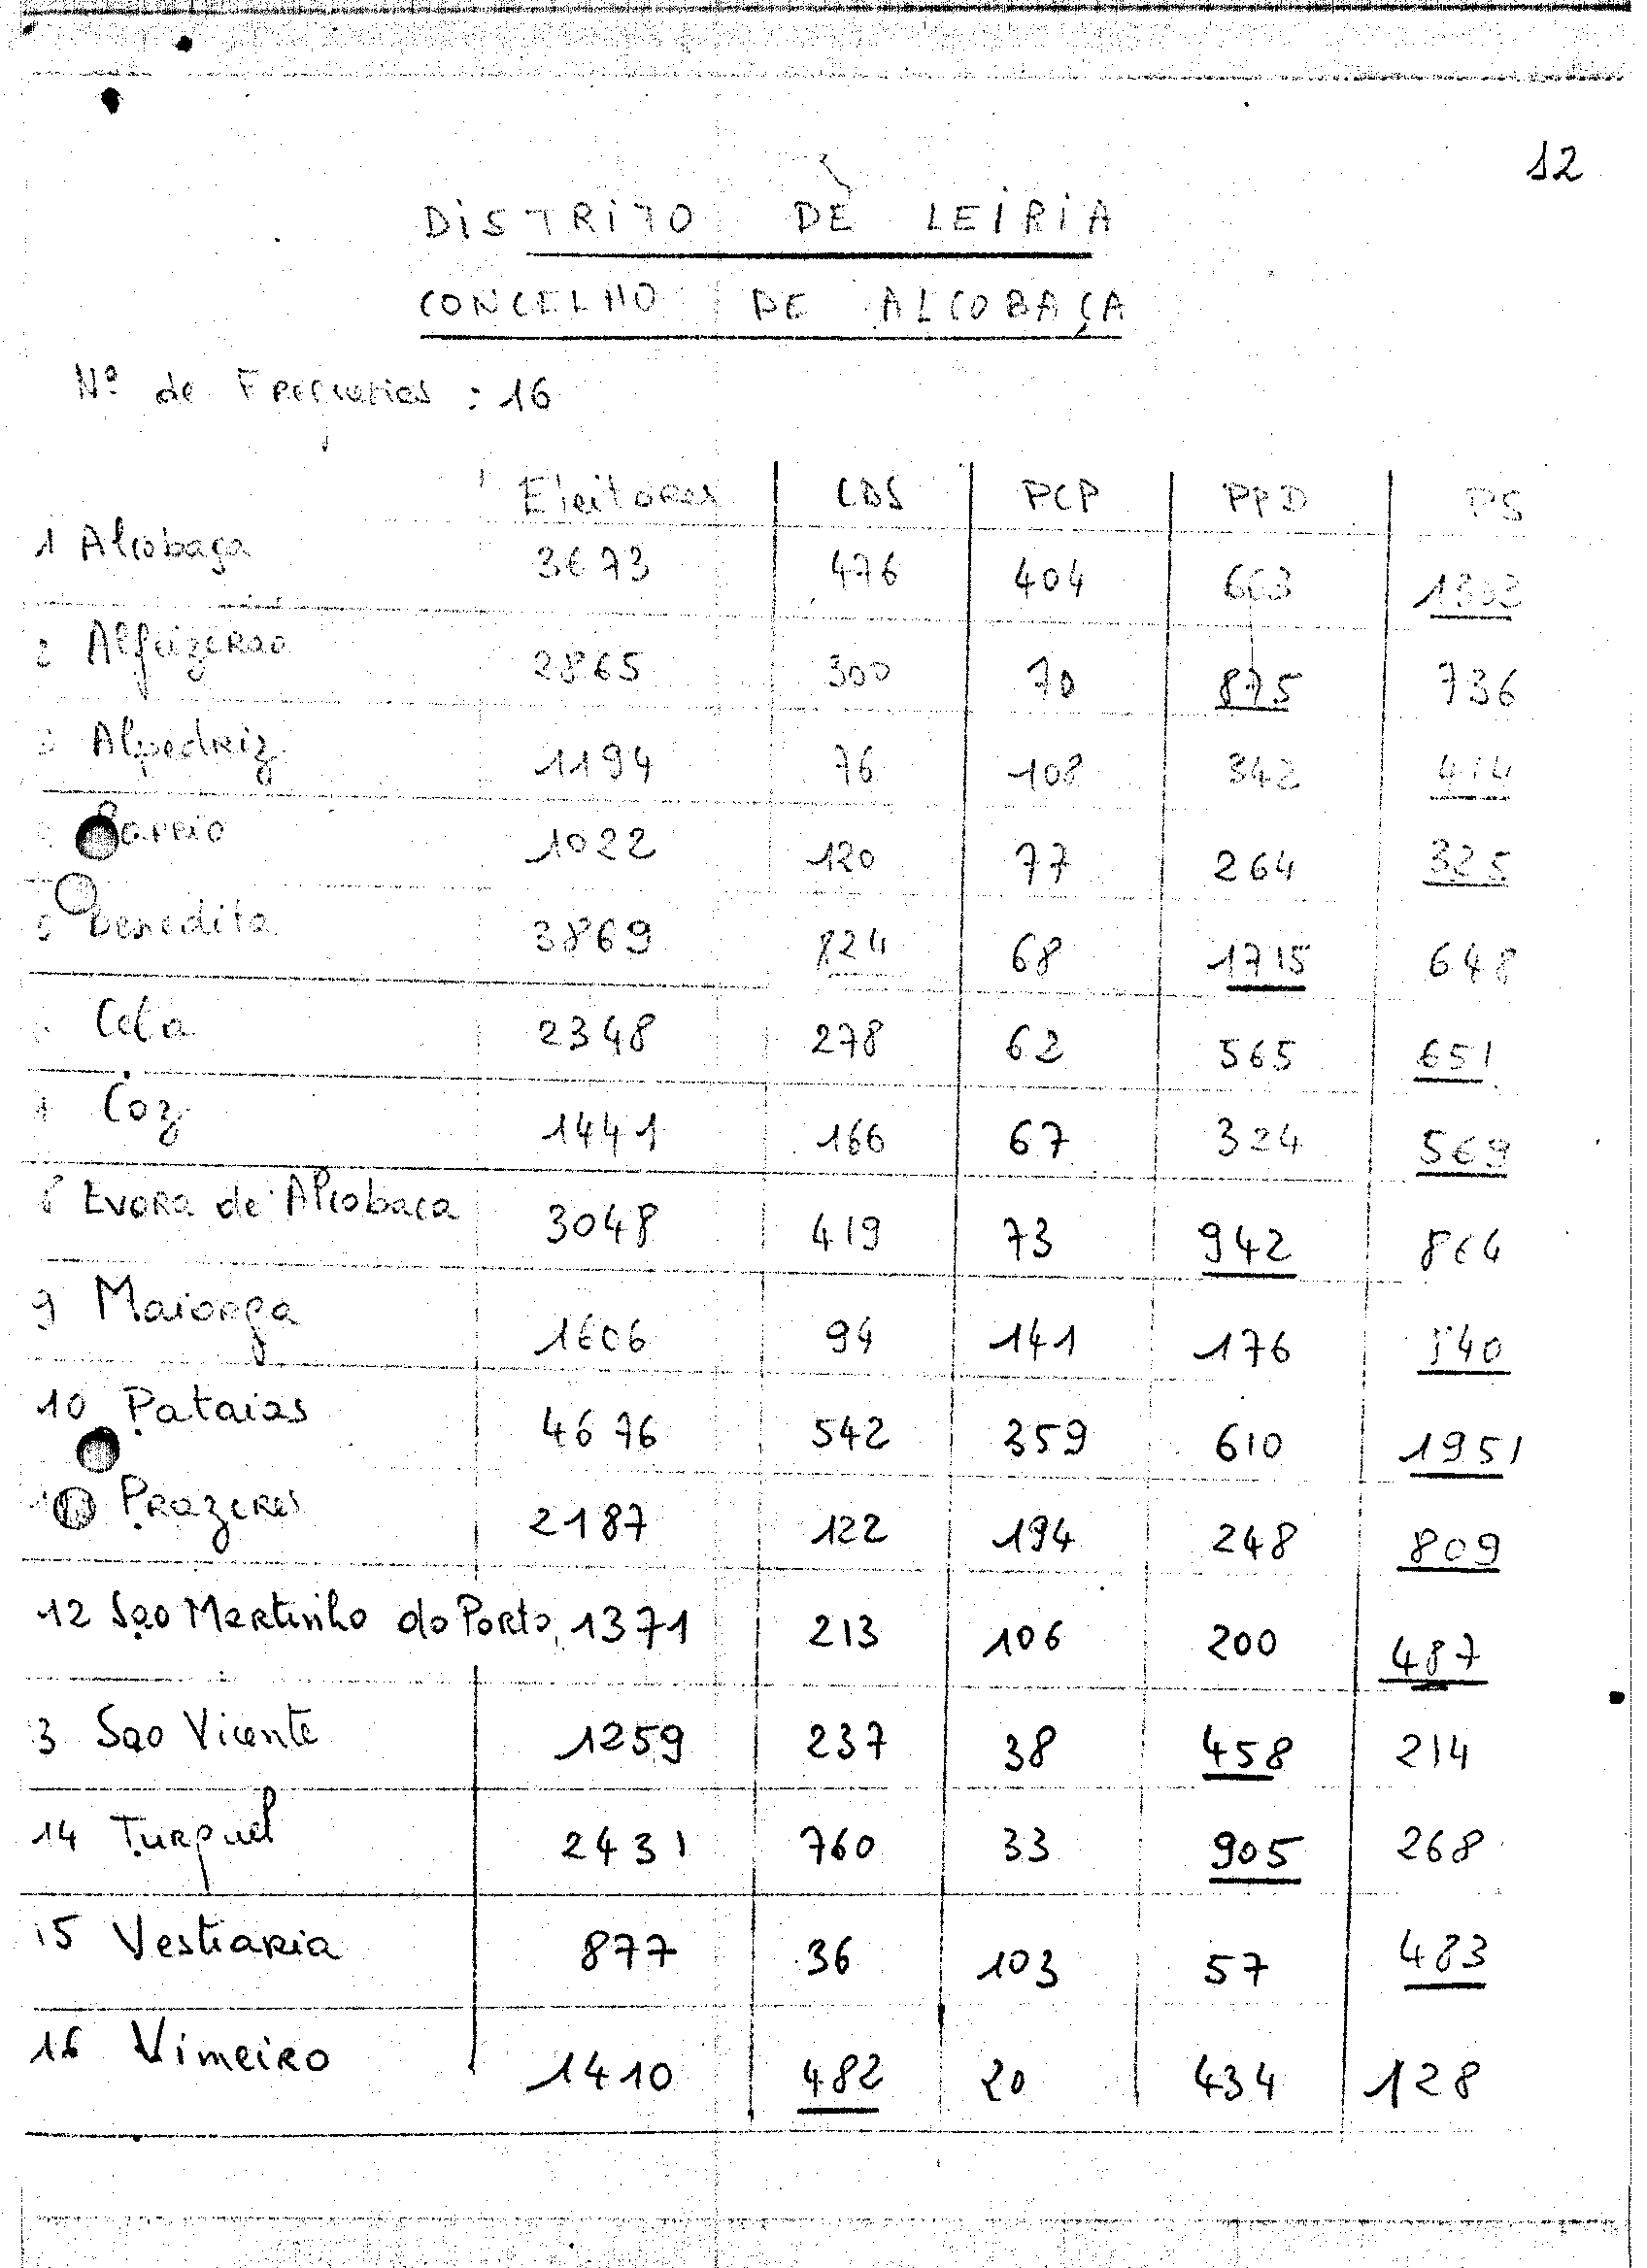 12
DISTRITO DE LEIRIA
CONCELHO DE ALCOBAÇA
Nº de Freguesias : 16
Eleitores CDS PCP PPD PS
1 Alcobaça 3673 476 404 1302
2 Alfeizerao 2865 300 70 875 736
3 Alpedriz 1194 76 108 342 414
Barrio 1022 120 77 264 325
5 Benedita 3869 824 68 1715 648
Cela 2348 278 62 565 651
Coz 1441 166 67 324 569
8 Evora de Alcobaca 3048 419 73 942 864
9 Maiorga 1606 94 141 176 540
10 Pataias 4676 542 359 610 1951
Prazeres 2187 122 194 248 809
12 Sao Martinho do Porto 1371 213 106 200 487
3 Sao Vicente 1259 237 38 458 214
14 Turquel 2431 760 33 905 268
15 Vestiaria 877 36 103 57 483
16 Vimeiro 1410 482 20 434 128